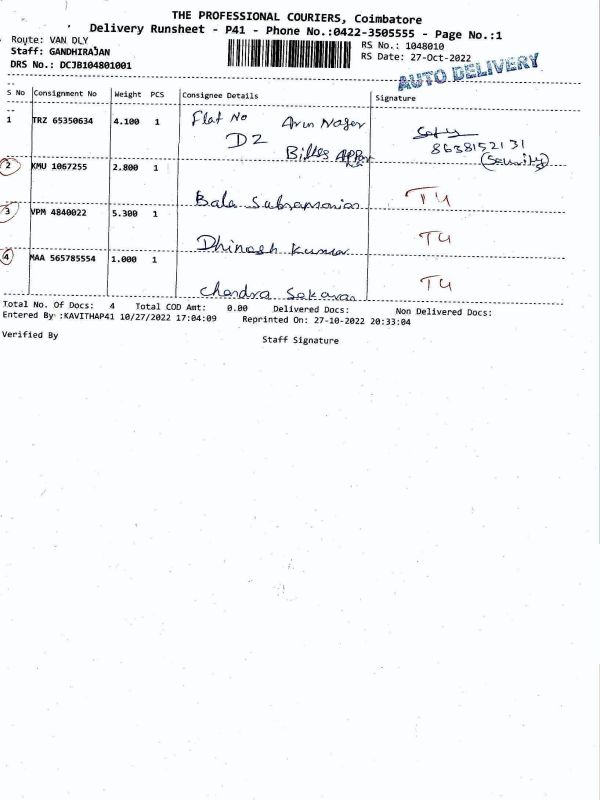 THE PROFESSIONAL COURIERS, Coimbatore
Delivery Runsheet - P41 - Phone No.:0422-3505555 - Page No.:1
Route: VAN DLY
RS No.: 1048010
Staff: GANDHIRAJAN
RS Date: 27-Oct-2022
DRS No.: DCJB104801001
AUTO DELIVERY
S No Consignment No Weight PCS Consignee Details Signature
1 TRZ 65350634 4.100 1 Flat No Arun Nager
D2
8638152131
(Security)
2 KMU 1067255 2.800 1
Bala Subramanian T4
3 VPM 4840022 5.300 1
Dhinesh Kumar T4
4 MAA 565785554 1.000 1
Chandra Sekaran T4
Total No. Of Docs: 4 Total COD Amt: 0.00 Delivered Docs: Non Delivered Docs:
Entered By :KAVITHAP41 10/27/2022 17:04:09 Reprinted On: 27-10-2022 20:33:04
Verified By
Staff Signature